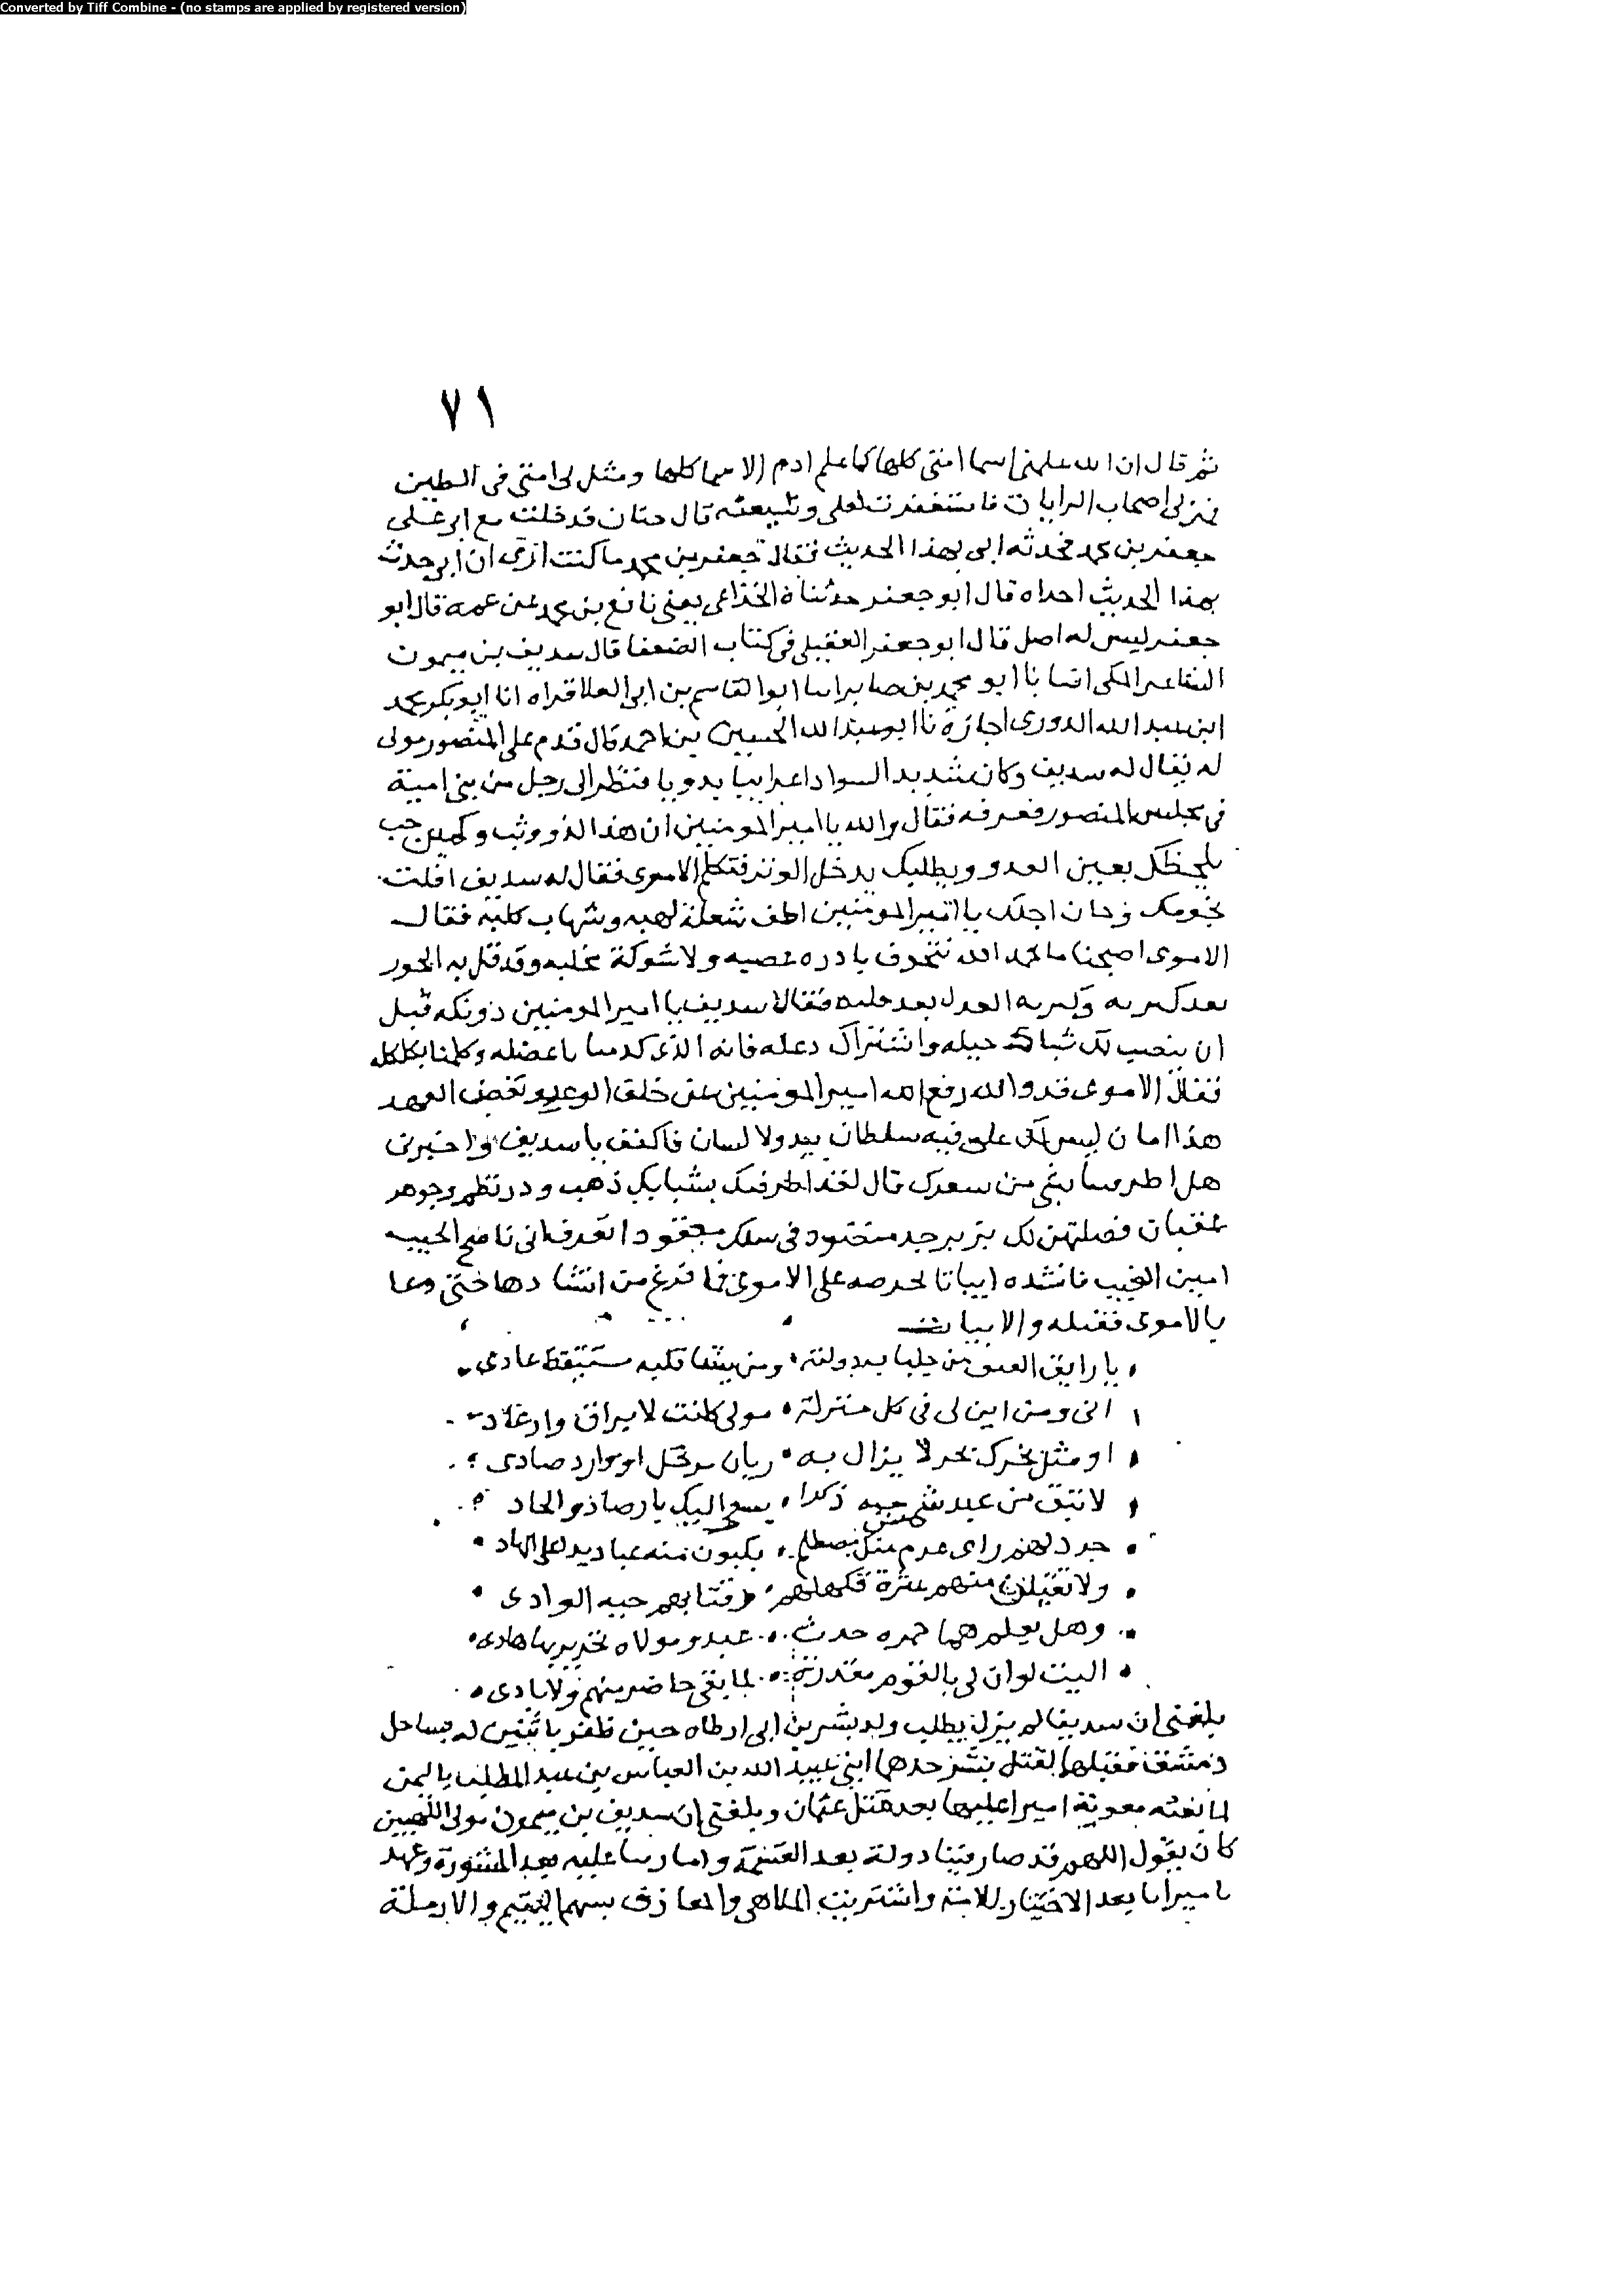 Converted by Tiff Combine - (no stamps are applied by registered version)
٧١
ثم قال ان الله علمنى اسما امتى كلها كما علم ادم الاسما كلها ومثل لى امتى فى الطين
فمر بى اصحاب الرايات فاستغفرت لعلى وشيعته قال حنان فدخلت مع ابى على
جعفر بن محمد فحدثه ابى بهذا الحديث فقال جعفر بن محمد ما كنت ارى ان ابى حدث
بهذا الحديث احداه قال ابو جعفر حدثناه الخزاعى يعنى نافع بن محمد عن عمه قال ابو
جعفر ليس له اصل قال ابو جعفر العقيلى فى كتاب الضعفا قال سديف بن ميمون
الشاعر المكى انبانا ابو محمد بن صابر انا ابو القاسم بن ابى العلا قراه انا ابو بكر محمد
ابن عبد الله الدورى اجازة نا ابو عبد الله الحسين بن احمد قال قدم على المنصور مولى
له يقال له سديف وكان شديد السواد اعرابيا بدويا فنظر الى رجل من بنى امية
فى مجلس المنصور فعرفه فقال والله يا امير المومنين ان هذا لذو وثب وكمين
يلحظك بعين العدو ويطلبك بدخل الوتر فتكلم الاموى فقال له سديف افلت
نجومك وحان اجلك يا امير المومنين اطف شعلة لهبه وشهاب كلبه فقال
الاموى اصبحنا ما بحمد الله نتخوف بادره غضبه ولا شوكة مخلبه وقد قل به الجور
بعد كثرته وكثر به العدل بعد قله فقال سديف يا امير المومنين دونكه قبل
ان ينصب لك شباك حبيله واشتراك دغله فانه الذى كدمنا باعضله وكلمنا بكلكله
فقال الاموى قد والله رفع الله امير المومنين عن خلف الوعد ونقض العهد
هذا امان ليس لك على فيه سلطان بيد ولا لسان فاكفف يا سديف واخبرنى
هل اطرفتنا بشى من سعرك قال لغد اطرفك بشبايك ذهب ودر نظم وجوهر
عقيان فصلتهن لك بزبرجد منضود فى سلك معقود تعرف انى ناصح الحبيب
امين الغيب فانشده ابياتا يحرصه على الاموى فما فرغ من انشادها حتى دعا
بالاموى فقتله والابيات
يا رايق العدو من جلبا بدولته ومن يشا قلبه مستيقظ عادى
انى ومن اين لى فى كل منزلة مولى كانت لا يراق وارعاد
او مثل بحرك بحر لا يزال به ريان مرتحل او وارد صادى
لا تبق من عبد شمس حيه ذكرا يسعى اليك بارصاد والحاد
جرد لهم راى عزم منك مصطلم يكبون منه عباديد على الهاد
ولا تقيلن منهم عثرة فكهلهم وفتا بهم حيه الوادى
وهل يعلم هما حمره حدث عبد ومولاه نحرير بها هادى
اليت لو ان لى بالقوم مقدرة لما بقى حاضر منهم ولا بادى
بلغنى ان سديفا لم يزل يطلب ولد بشر بن ابى ارطاه حين ظفر باثنين له بساحل
دمشق فقتلهما لقتل بشر جدهما ابنى عبيد الله بن العباس بن عبد المطلب باليمن
لما بعثه معوية اميرا عليها بعد قتل عثمان وبلغنى ان سديف بن ميمون مولى اللهبيين
كان يقول اللهم قد صار فينا دولة بعد القسمة وامارتنا عليه بعد المشورة وعهد
نا ميراثا بعد الاختيار للامة واشتريت الملاهى والمعازف بسهم اليتيم والارملة